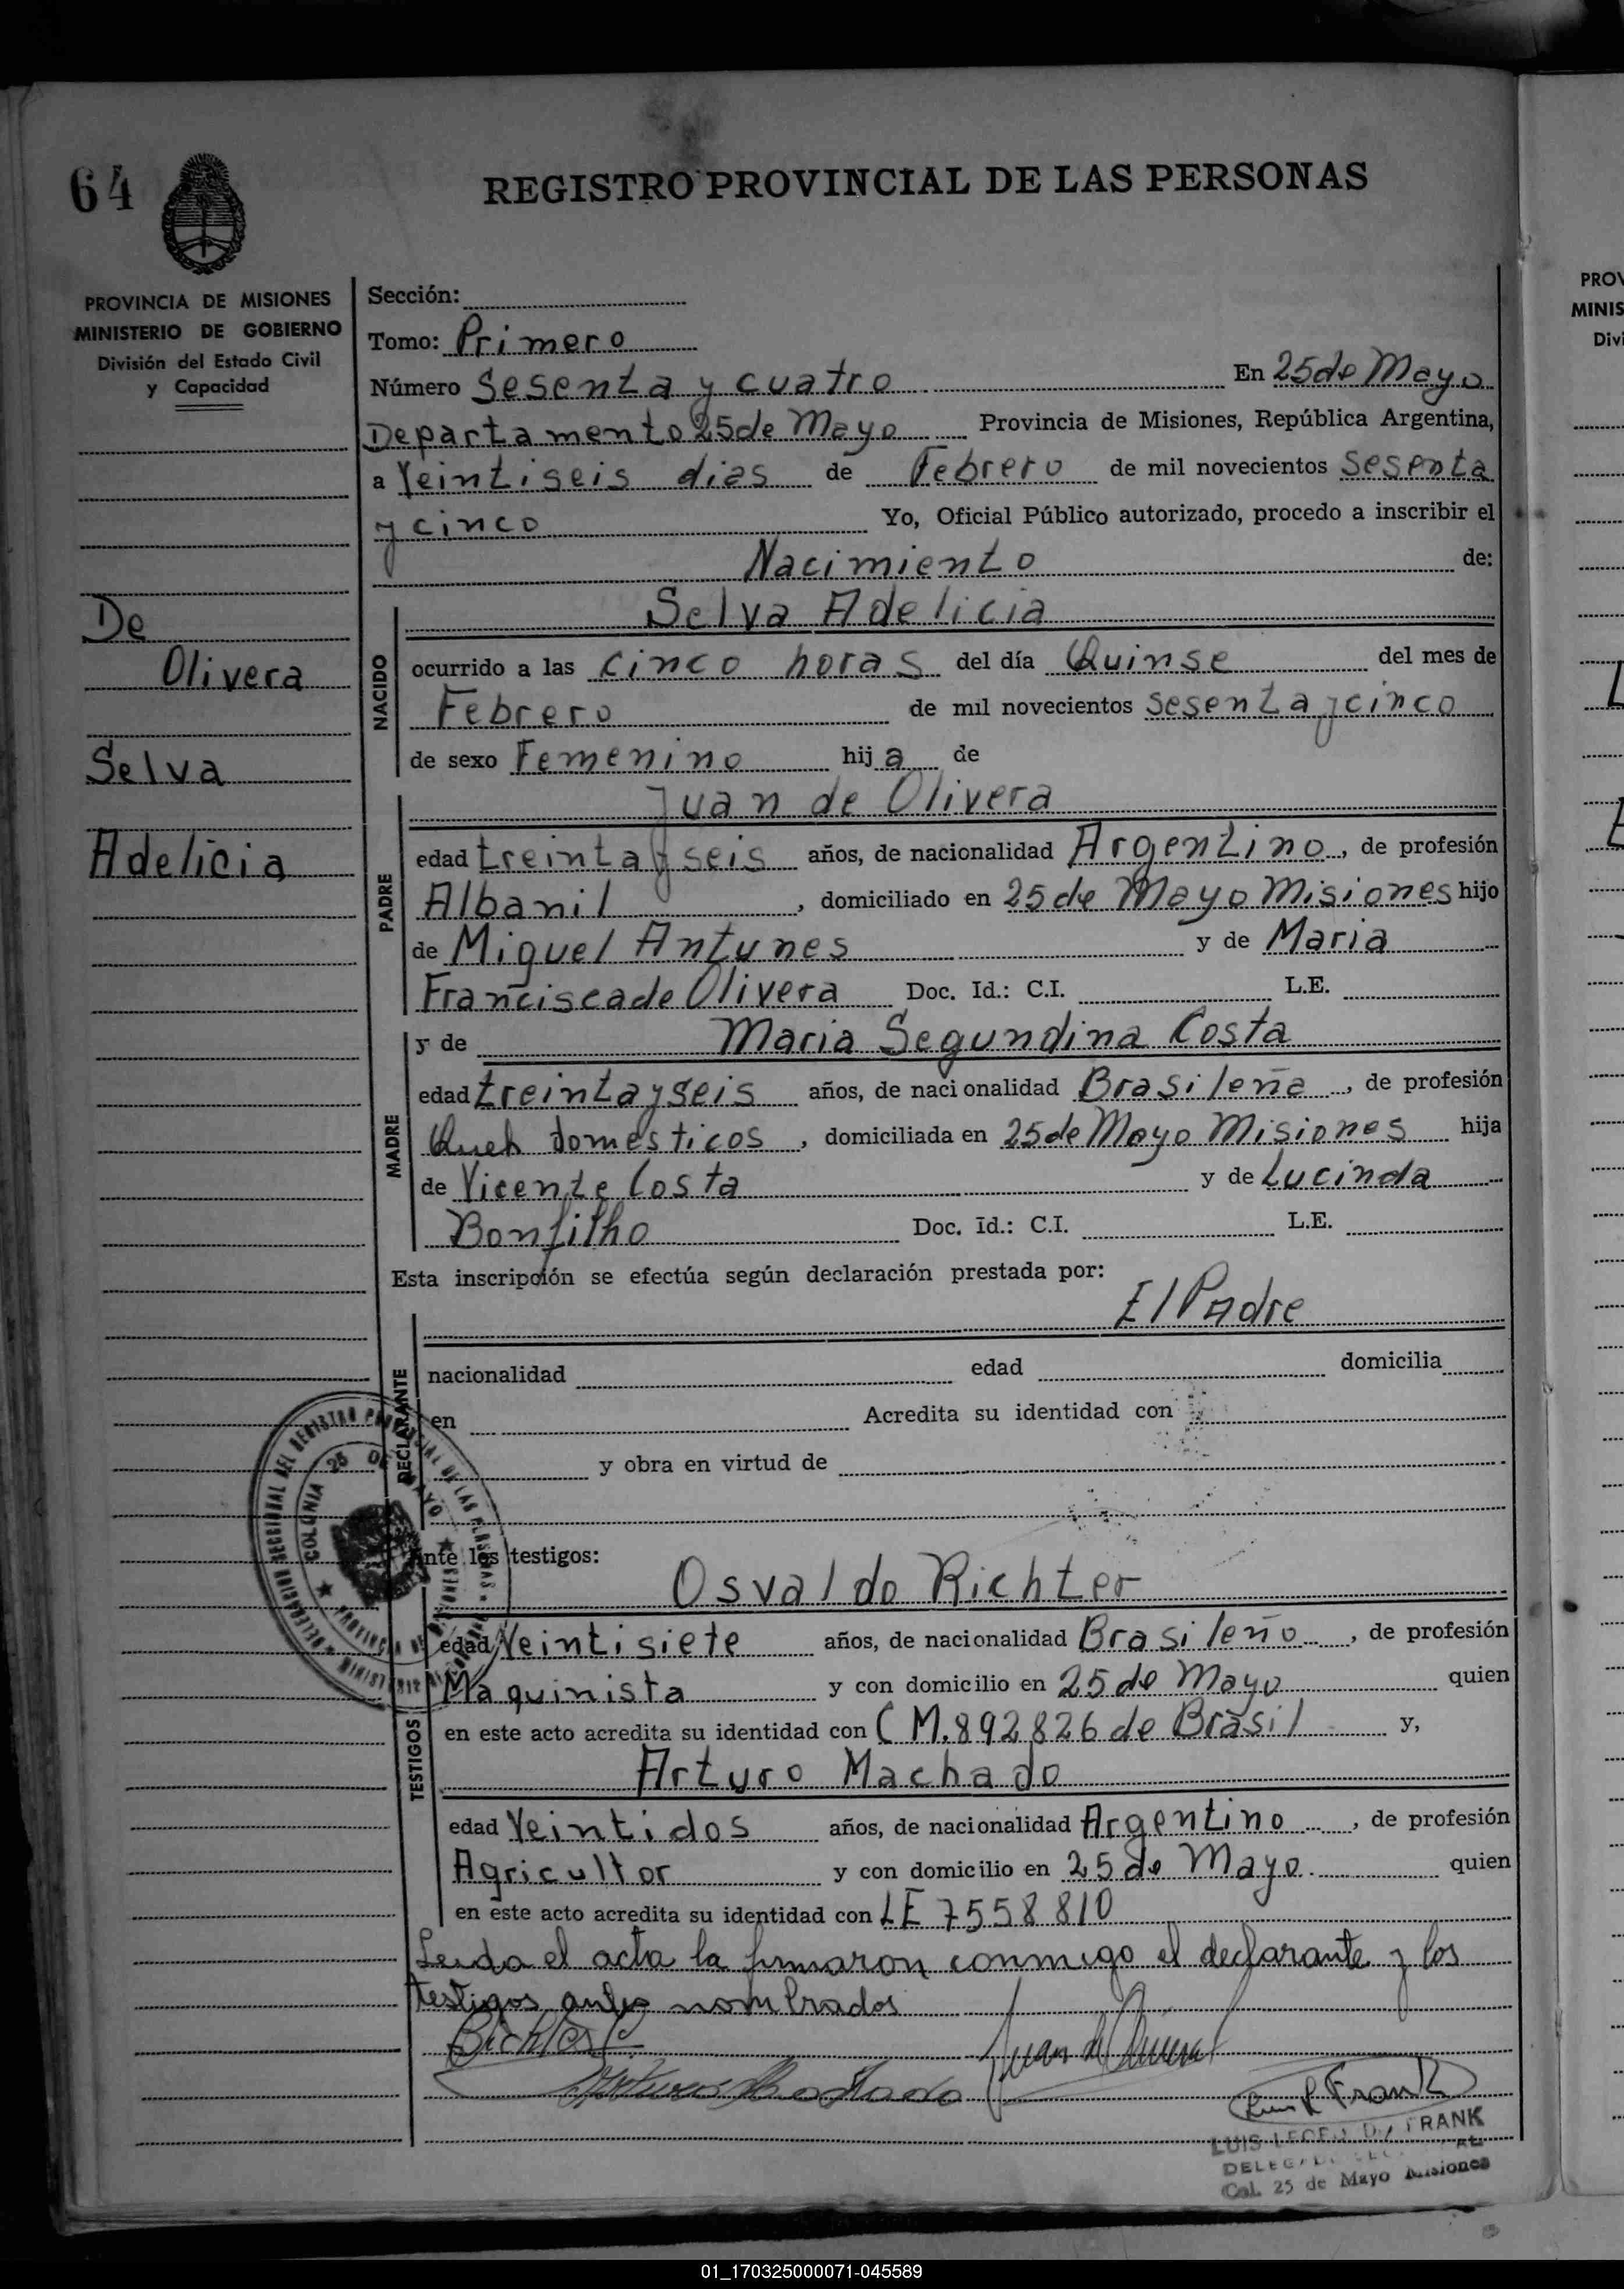 64
REGISTRO PROVINCIAL DE LAS PERSONAS
PROVINCIA DE MISIONES
MINISTERIO DE GOBIERNO
División del Estado Civil
y Capacidad
De
Olivera
Selva
Adelicia
Sección:
Tomo: Primero
Número Sesenta y cuatro En 25 de Mayo
Departamento 25 de Mayo Provincia de Misiones, República Argentina,
a Veintiseis dias de Febrero de mil novecientos Sesenta
y cinco Yo, Oficial Público autorizado, procedo a inscribir el
Nacimiento de:
NACIDO
Selva Adelicia
ocurrido a las cinco horas del día Quinse del mes de
Febrero de mil novecientos sesenta y cinco
de sexo Femenino hija de
PADRE
Juan de Olivera
edad treinta y seis años, de nacionalidad Argentino, de profesión
Albanil, domiciliado en 25 de Mayo Misiones hijo
de Miguel Antunes y de Maria
Francisca de Olivera Doc. Id.: C.I. L.E.
MADRE
y de Maria Segundina Costa
edad treinta y seis años, de nacionalidad Brasileña, de profesión
Queh domésticos, domiciliada en 25 de Mayo Misiones hija
de Vicente Costa y de Lucinda
Bonfilho Doc. Id.: C.I. L.E.
Esta inscripción se efectúa según declaración prestada por:
El Padre
DECLARANTE
nacionalidad edad domicilia
en Acredita su identidad con
y obra en virtud de
COLONIA 25 DE MAYO
Ante los testigos:
TESTIGOS
Osvaldo Richter
edad Veintisiete años, de nacionalidad Brasileño, de profesión
Maquinista y con domicilio en 25 de Mayo quien
en este acto acredita su identidad con CM.892826 de Brasil y,
Arturo Machado
edad Veintidos años, de nacionalidad Argentino, de profesión
Agricultor y con domicilio en 25 de Mayo quien
en este acto acredita su identidad con LE 7558810
Leida el acta la firmaron conmigo el declarante y los
testigos antes nombrados
Juan de Olivera
Arturo Machado
Luis L Frank
FRANK
Col. 25 de Mayo Misiones
PROV
MINIS
Divi
01_170325000071-045589